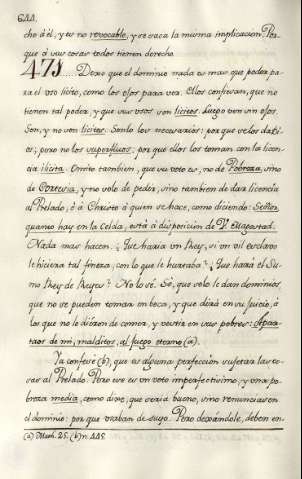 644.
cho á él, y es no revocable, y se saca la misma implicacion. Por
que á sus cosas todos tienen derecho
471.... Dexo que el dominio nada es mas que poder pa-
ra el uso licito, como los ojos para ver. Ellos confiesan, que no
tienen tal poder, y que sus usos son licitos. Luego ven sin ojos.
Son, y no son licitos. Sonlo los necesarios: porque se los da
os; pero no los superfluos: por que ellos los toman con la licen-
cia ilicita. Omito tambien, que su voto es, no de Pobreza, sino
de Cortesia, y no solo de pedir, sino tambien de dar licencia
al Prelado, ó á Christo á quien se hace, como diciendo: Señor,
quanto hay en la Celda, está á disposicion de V. Magestad.
Nada mas hacen. ¿Que haria un Rey, si un vil esclavo
le hiciera tal fineza, con lo que le hurtaba? ¿Que hará el Su-
mo Rey de Reyes? No lo sé. Sé, que solo le dan dominios,
que no se pueden tomar en boca, y que dirá en su juicio, á
los que no le dieron de comer, y vestir en sus pobres: Apar-
taos de mi, malditos, al fuego eterno (a).
Ya confesé (b), que es alguna perfeccion sujetar las co-
sas al Prelado. Pero ese es un voto imperfectisimo, y una po-
breza media, como dixe, que seria bueno, sino renunciasen
el dominio: por que usaban de suyo. Pero dexandole, deben en-
(a) Math. 25. (b) n. 445.